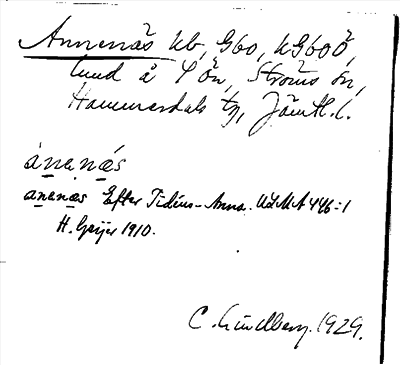 Annenäs kb, G60, KG60Ö,
lund å Yön, Ströms sn,
Hammerdals tg, Jämtl. l.
ánenás
ananas Efter Tidéns-Anna. ULMA 446:1
H. Geijer 1910.
C. Lindberg. 1929.